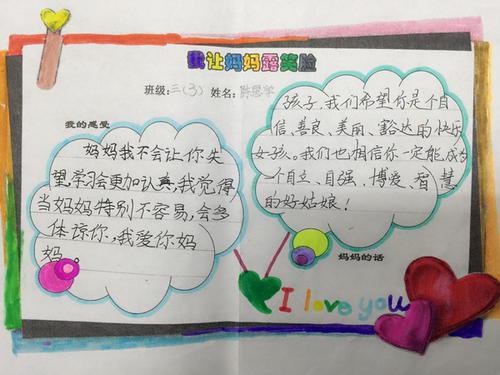 我让妈妈露笑脸
班级:三(3) 姓名:陈思宇
我的感受
妈妈我不会让你失
望,学习会更加认真,我觉得
当妈妈特别不容易,会多
体谅你,我爱你妈
妈。
孩子,我们希望你是个自
信、善良、美丽、豁达的快乐
女孩。我们也相信你一定能成为
一个自立、自强、博爱、智慧
的好姑娘!
妈妈的话
I love you